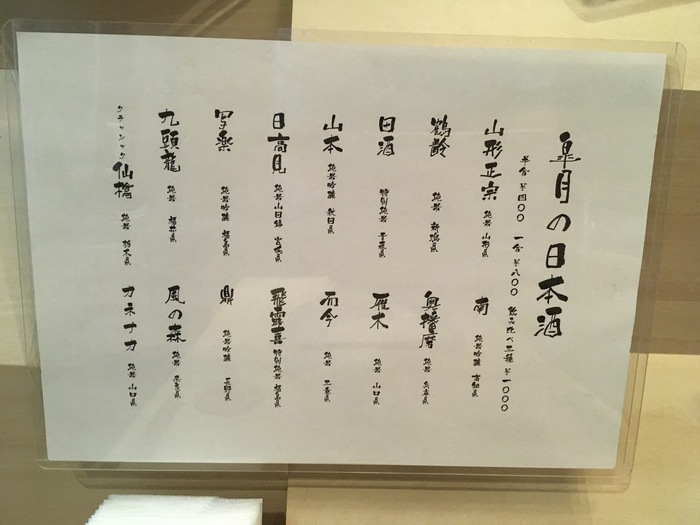 皐月の日本酒
半合 ¥四〇〇 一合 ¥八〇〇 飲み比べ三種 ¥一〇〇〇
山形正宗 純米 山形県
南 純米吟醸 高知県
鶴齢 純米 新潟県
奥播磨 純米 兵庫県
田酒 特別純米 青森県
雁木 純米 山口県
山本 純米吟醸 秋田県
而今 純米 三重県
日高見 純米山田錦 宮城県
飛露喜 特別純米 福島県
写楽 純米吟醸 福島県
鼎 純米吟醸 長野県
九頭龍 純米 福井県
風の森 純米 奈良県
クラシック 仙禽 純米 栃木県
カネナカ 純米 山口県